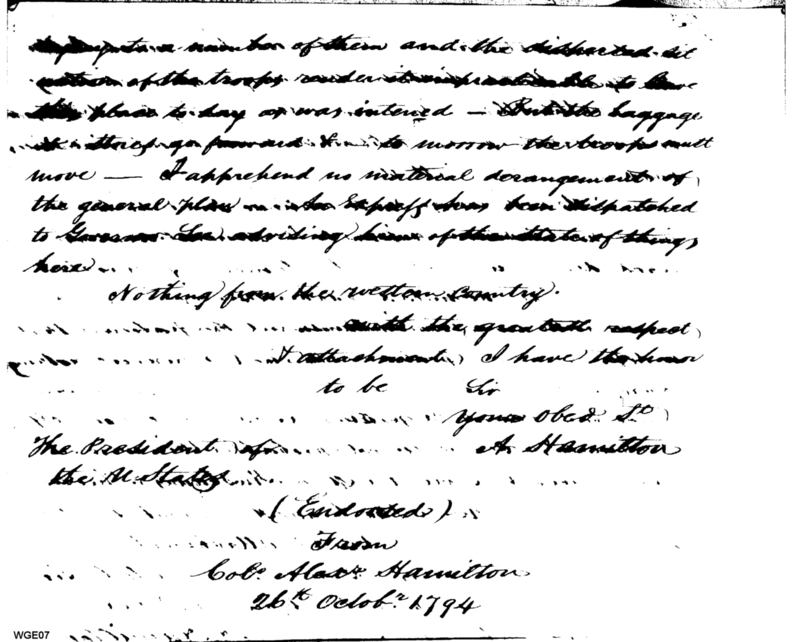 to a number of them and the dispersed sit
uation of the troops render it impracticable to leave
this place to day as was intened — But the baggage
& stores go forward & to morrow the troops must
move — I apprehend no material derangement of
the general plan An Express has been dispatched
to Governor Lee advising him of the state of things
here
Nothing from the western country.
with the greatest respect
& attachment, I have the honor
to be Sir
Your Obed. St
The President of A. Hamilton
the U. States
(Endorsed)
From
Colo. Alexr. Hamilton
26th Octobr. 1794
WGE07